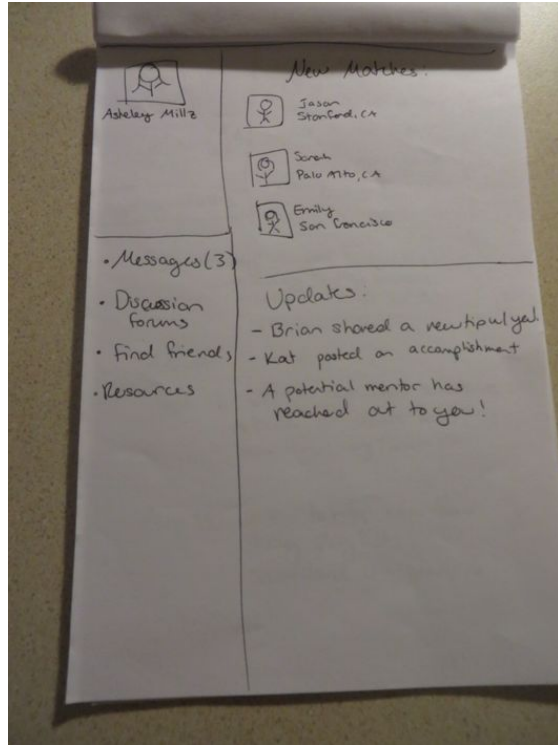 Asheley Millz
• Messages (3)
• Discussion
forums
• Find friends
• Resources
New Matches:
Jason
Stanford, CA
Sarah
Palo Alto, CA
Emily
San Francisco
Updates:
- Brian shared a new tip w/ you
- Kat posted an accomplishment
- A potential mentor has
reached out to you!